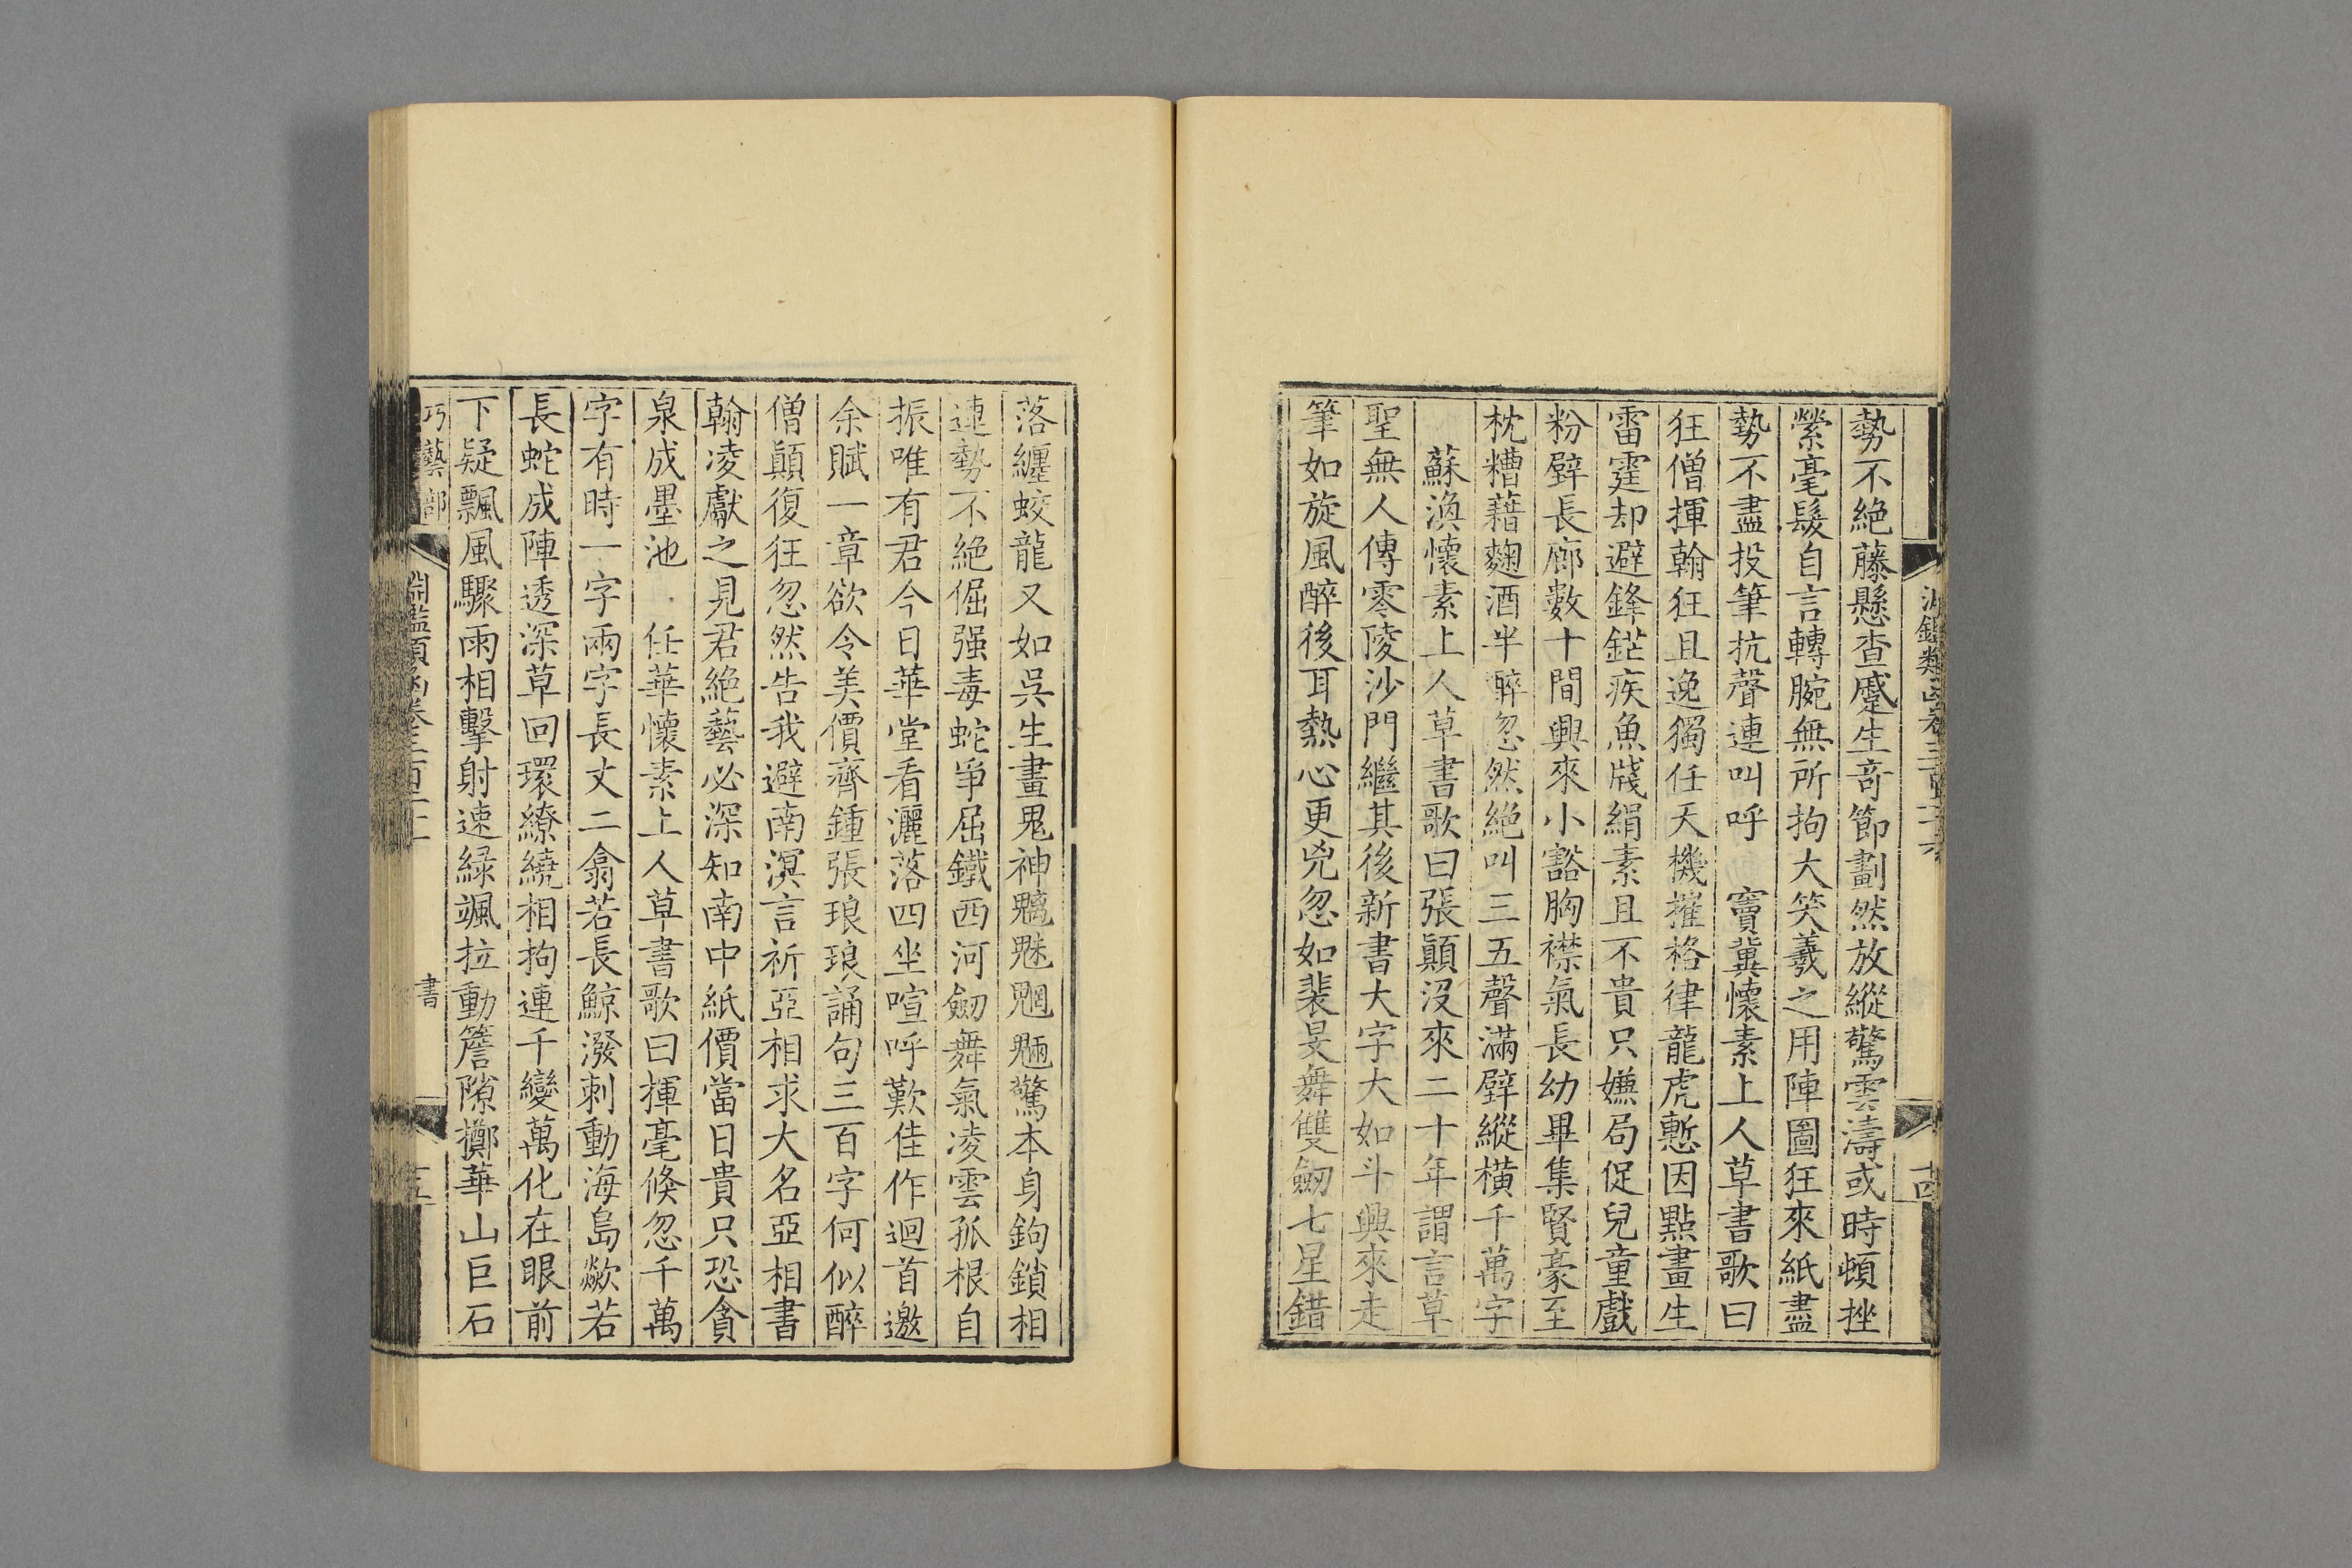 勢不絶藤懸查蹙生竒節劃然放縱驚雲濤或時頓挫
縈毫髮自言轉腕無所拘大笑羲之用陣圖狂來紙盡
勢不盡投筆抗聲連叫呼　竇冀懷素上人草書歌曰
狂僧揮翰狂且逸獨任天機摧格律龍虎慙因點畫生
雷霆却避鋒鋩疾魚牋絹素且不貴只嫌局促兒童戲
粉壁長廊數十間興來小豁胸襟氣長幼畢集賢豪至
枕糟藉麴酒半醉忽然絶叫三五聲滿壁縱橫千萬字
蘇渙懷素上人草書歌曰張顛沒來二十年謂言草
聖無人傳零陵沙門繼其後新書大字大如斗興來走
筆如旋風醉後耳熱心更兇忽如裴旻舞雙劒七星錯
落纏蛟龍又如呉生畫鬼神魑魅魍魎驚本身鉤鎖相
連勢不絶倔强毒蛇爭屈鐵西河劒舞氣凌雲孤根自
振唯有君今日華堂看灑落四坐喧呼歎佳作迴首邀
余賦一章欲令美價齊鍾張琅琅誦句三百字何似醉
僧顛復狂忽然告我避南溟言祈亞相求大名亞相書
翰凌獻之見君絶藝必深知南中紙價當日貴只恐貪
泉成墨池　任華懷素上人草書歌曰揮毫倏忽千萬
字有時一字兩字長丈二翕若長鯨潑刺動海島歘若
長蛇成陣透深草回環繚繞相拘連千變萬化在眼前
下疑飄風驟雨相擊射速緑颯拉動簷隙擲華山巨石
巧藝部
淵鑑類函卷三百二十
書